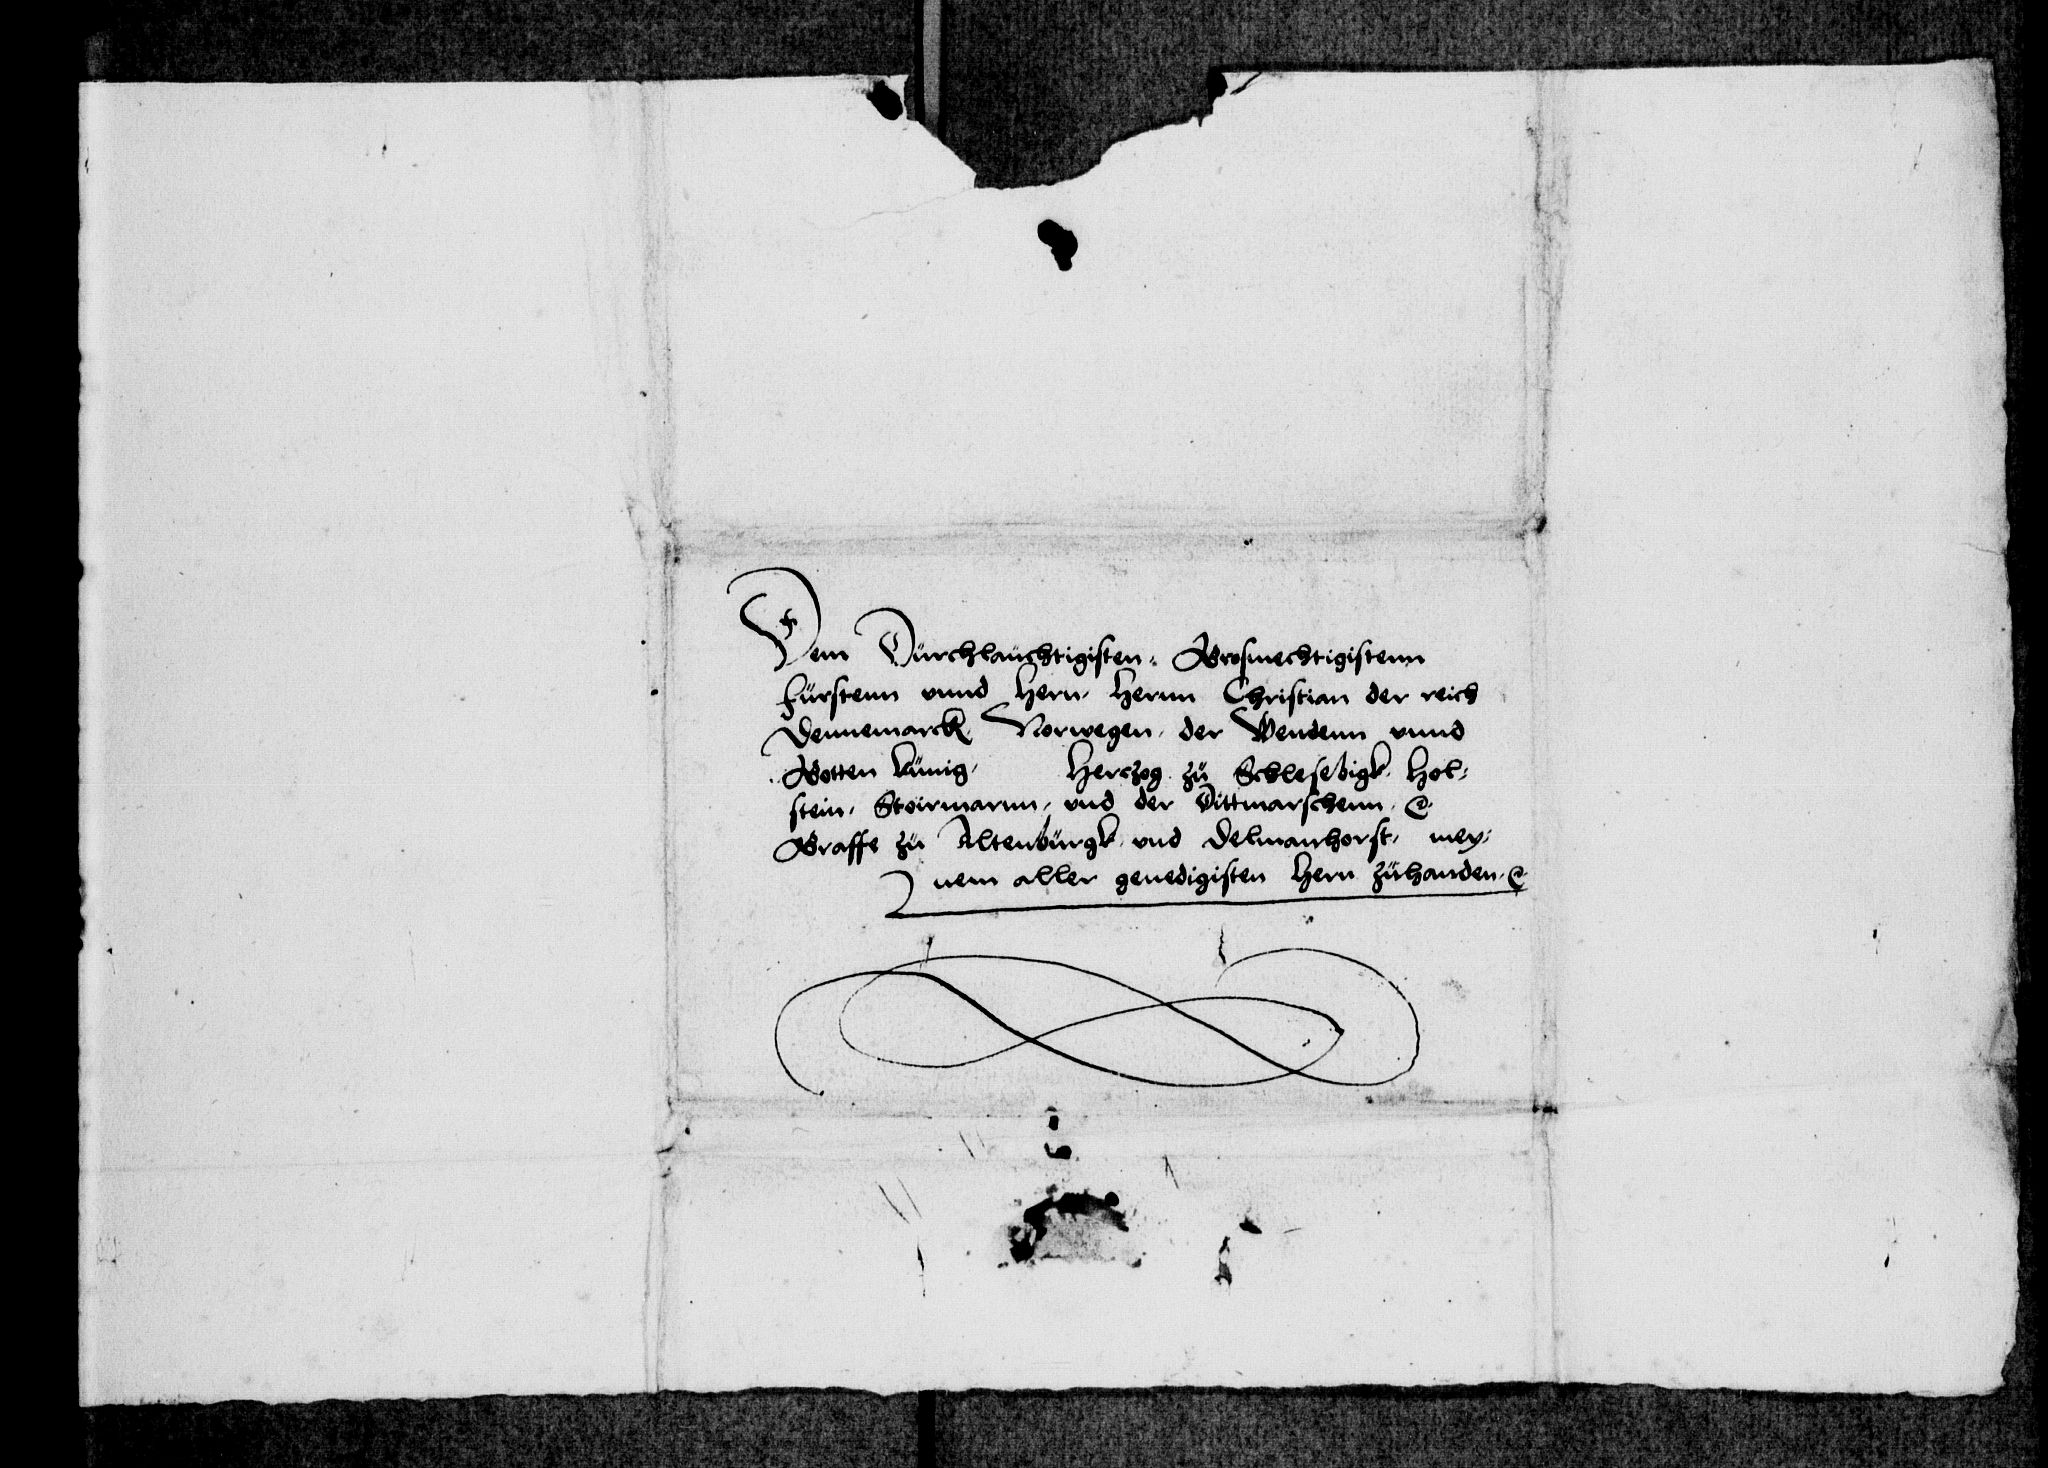 Dem Dürchlaüchtigisten, Grosmechtigistenn
fürstenn vnnd hern, hernn Christian der reich
Dennemarck, Norwegen, der Wendenn vnnd
Gotten künig, herczog zü Schleseßigk, Hol-
stein, Stoirmarnn, vnd der Dittmarschenn, &
Graffe zü Altenbürgk, vnd Delmanhorst, mey-
nem aller genedigisten hern zühanden, &